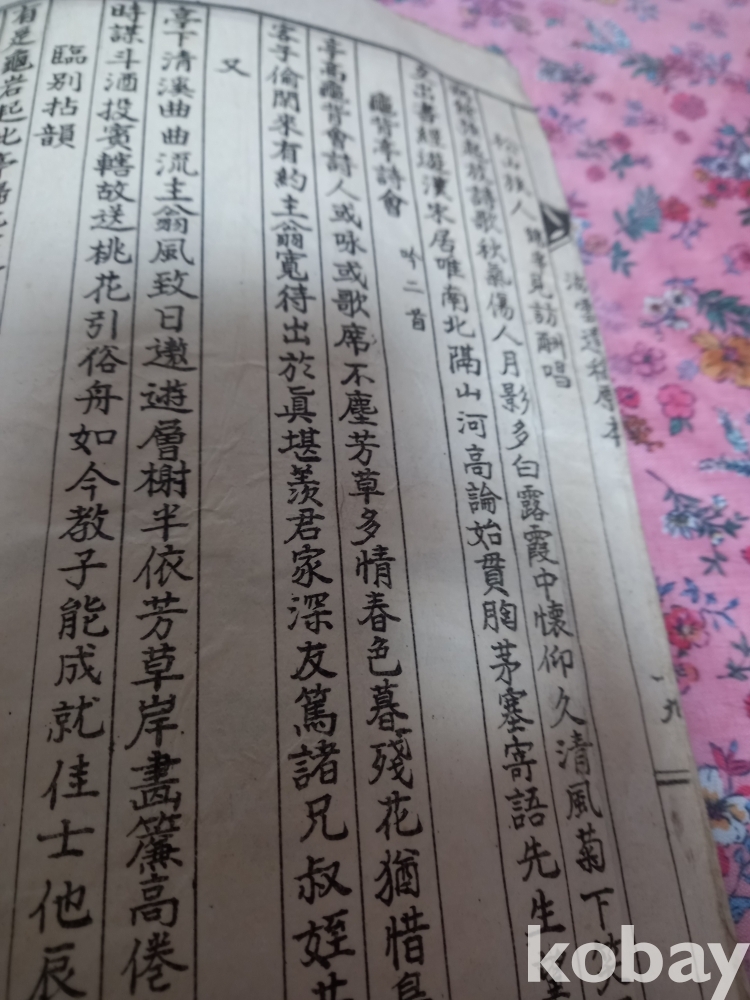 一九
松山族人 見訪酬唱
詩歌秋氣傷人月影多白露霞中懷仰久清風菊下
交出書經遊漢宋居唯南北隔山河高論始貫胸茅塞寄語先生
龜背亭詩會 吟二首
亭高龜背會詩人或咏或歌席不塵芳草多情春色暮殘花猶惜鳥
客子偷閒來有約主翁寬待出於眞堪羨君家深友篤諸兄叔姪共
又
亭下清溪曲曲流主翁風致日遨遊層榭半依芳草岸畵簾高倦
時謀斗酒投賓轄故送桃花引俗舟如今教子能成就佳士他辰
臨别拈韻
有是龜岩起此亭
kobay